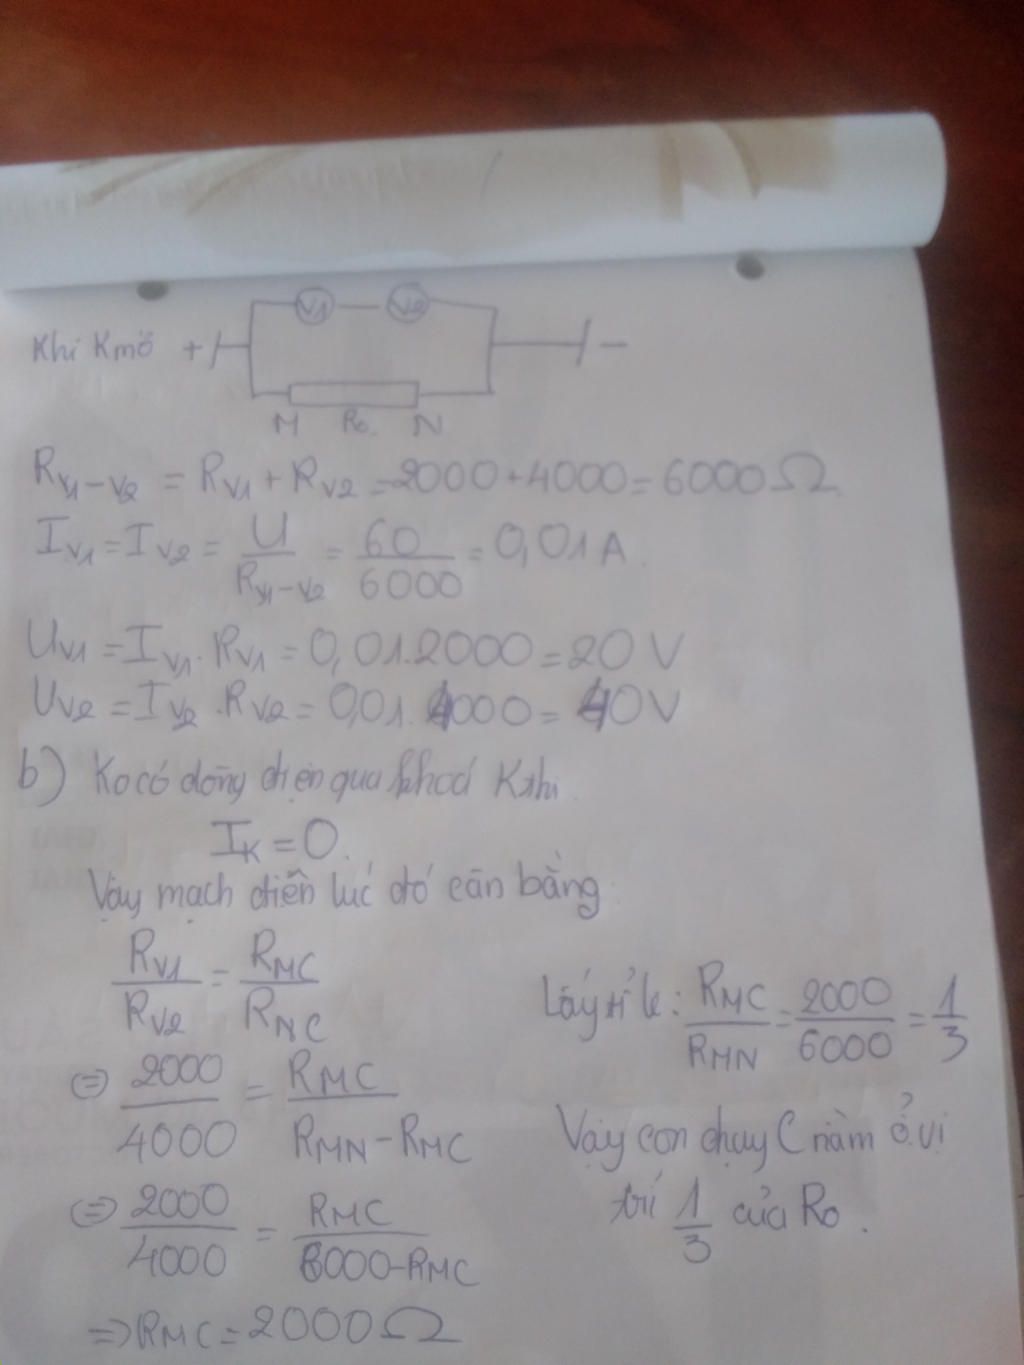 Khi K mở + V1 V2 -
M R₀ N
R_{V1-V2} = R_{V1} + R_{V2} = 2000 + 4000 = 6000 Ω
I_{V1} = I_{V2} = U/R_{V1-V2} = 60/6000 = 0,01 A.
U_{V1} = I_{V1}.R_{V1} = 0,01.2000 = 20 V
U_{V2} = I_{V2}.R_{V2} = 0,01.4000 = 40 V
b) Ko có dòng điện qua khoá K khi
I_K = 0.
Vậy mạch điện lúc đó cân bằng
R_{V1}/R_{V2} = R_{MC}/R_{NC}
⇔ 2000/4000 = R_{MC}/(R_{MN} - R_{MC})
⇔ 2000/4000 = R_{MC}/(6000 - R_{MC})
⇒ R_{MC} = 2000 Ω
Lấy tỉ lệ: R_{MC}/R_{MN} = 2000/6000 = 1/3
Vậy con chạy C nằm ở vị
trí 1/3 của R₀.